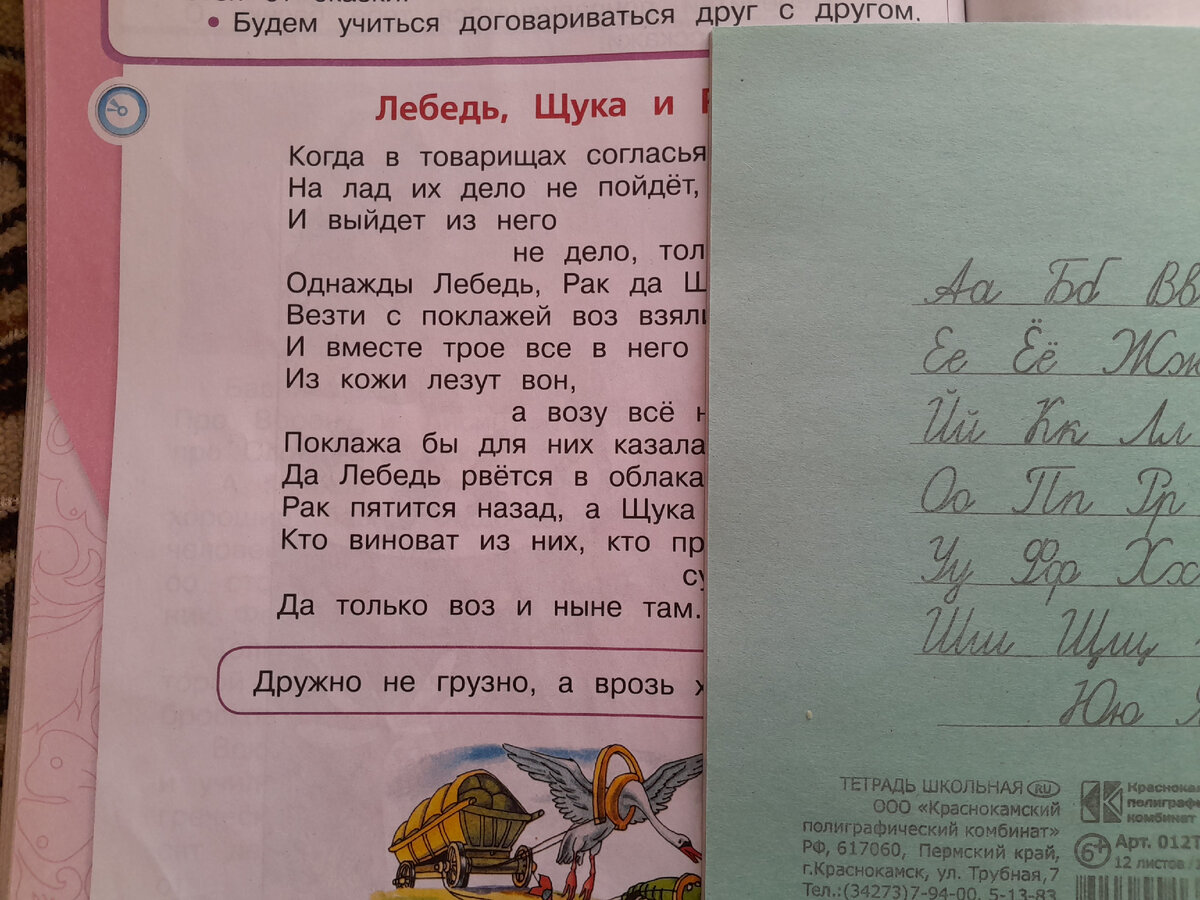 • Будем учиться договариваться друг с другом.
Лебедь, Щука и
Когда в товарищах согласья
На лад их дело не пойдёт,
И выйдет из него
не дело,
Однажды Лебедь, Рак да Щ
Везти с поклажей воз взяли
И вместе трое все в него
Из кожи лезут вон,
а возу всё н
Поклажа бы для них казала
Да Лебедь рвётся в облака
Рак пятится назад, а Щука
Кто виноват из них, кто пр
су
Да только воз и ныне там.
Дружно не грузно, а врозь х
Аа Бб Вв
Ее Ёё Жж
Йй Кк Лл
Оо Пп Рр
Уу Фф Хх
Шш Щщ
Юю Я
ТЕТРАДЬ ШКОЛЬНАЯ RU
ООО «Краснокамский
полиграфический комбинат»
РФ, 617060, Пермский край,
г.Краснокамск, ул. Трубная,7
Тел.:(34273)7-94-00, 5-13-83
Краснока
полиграф
комбинат
6+ Арт. 012Т
12 листов